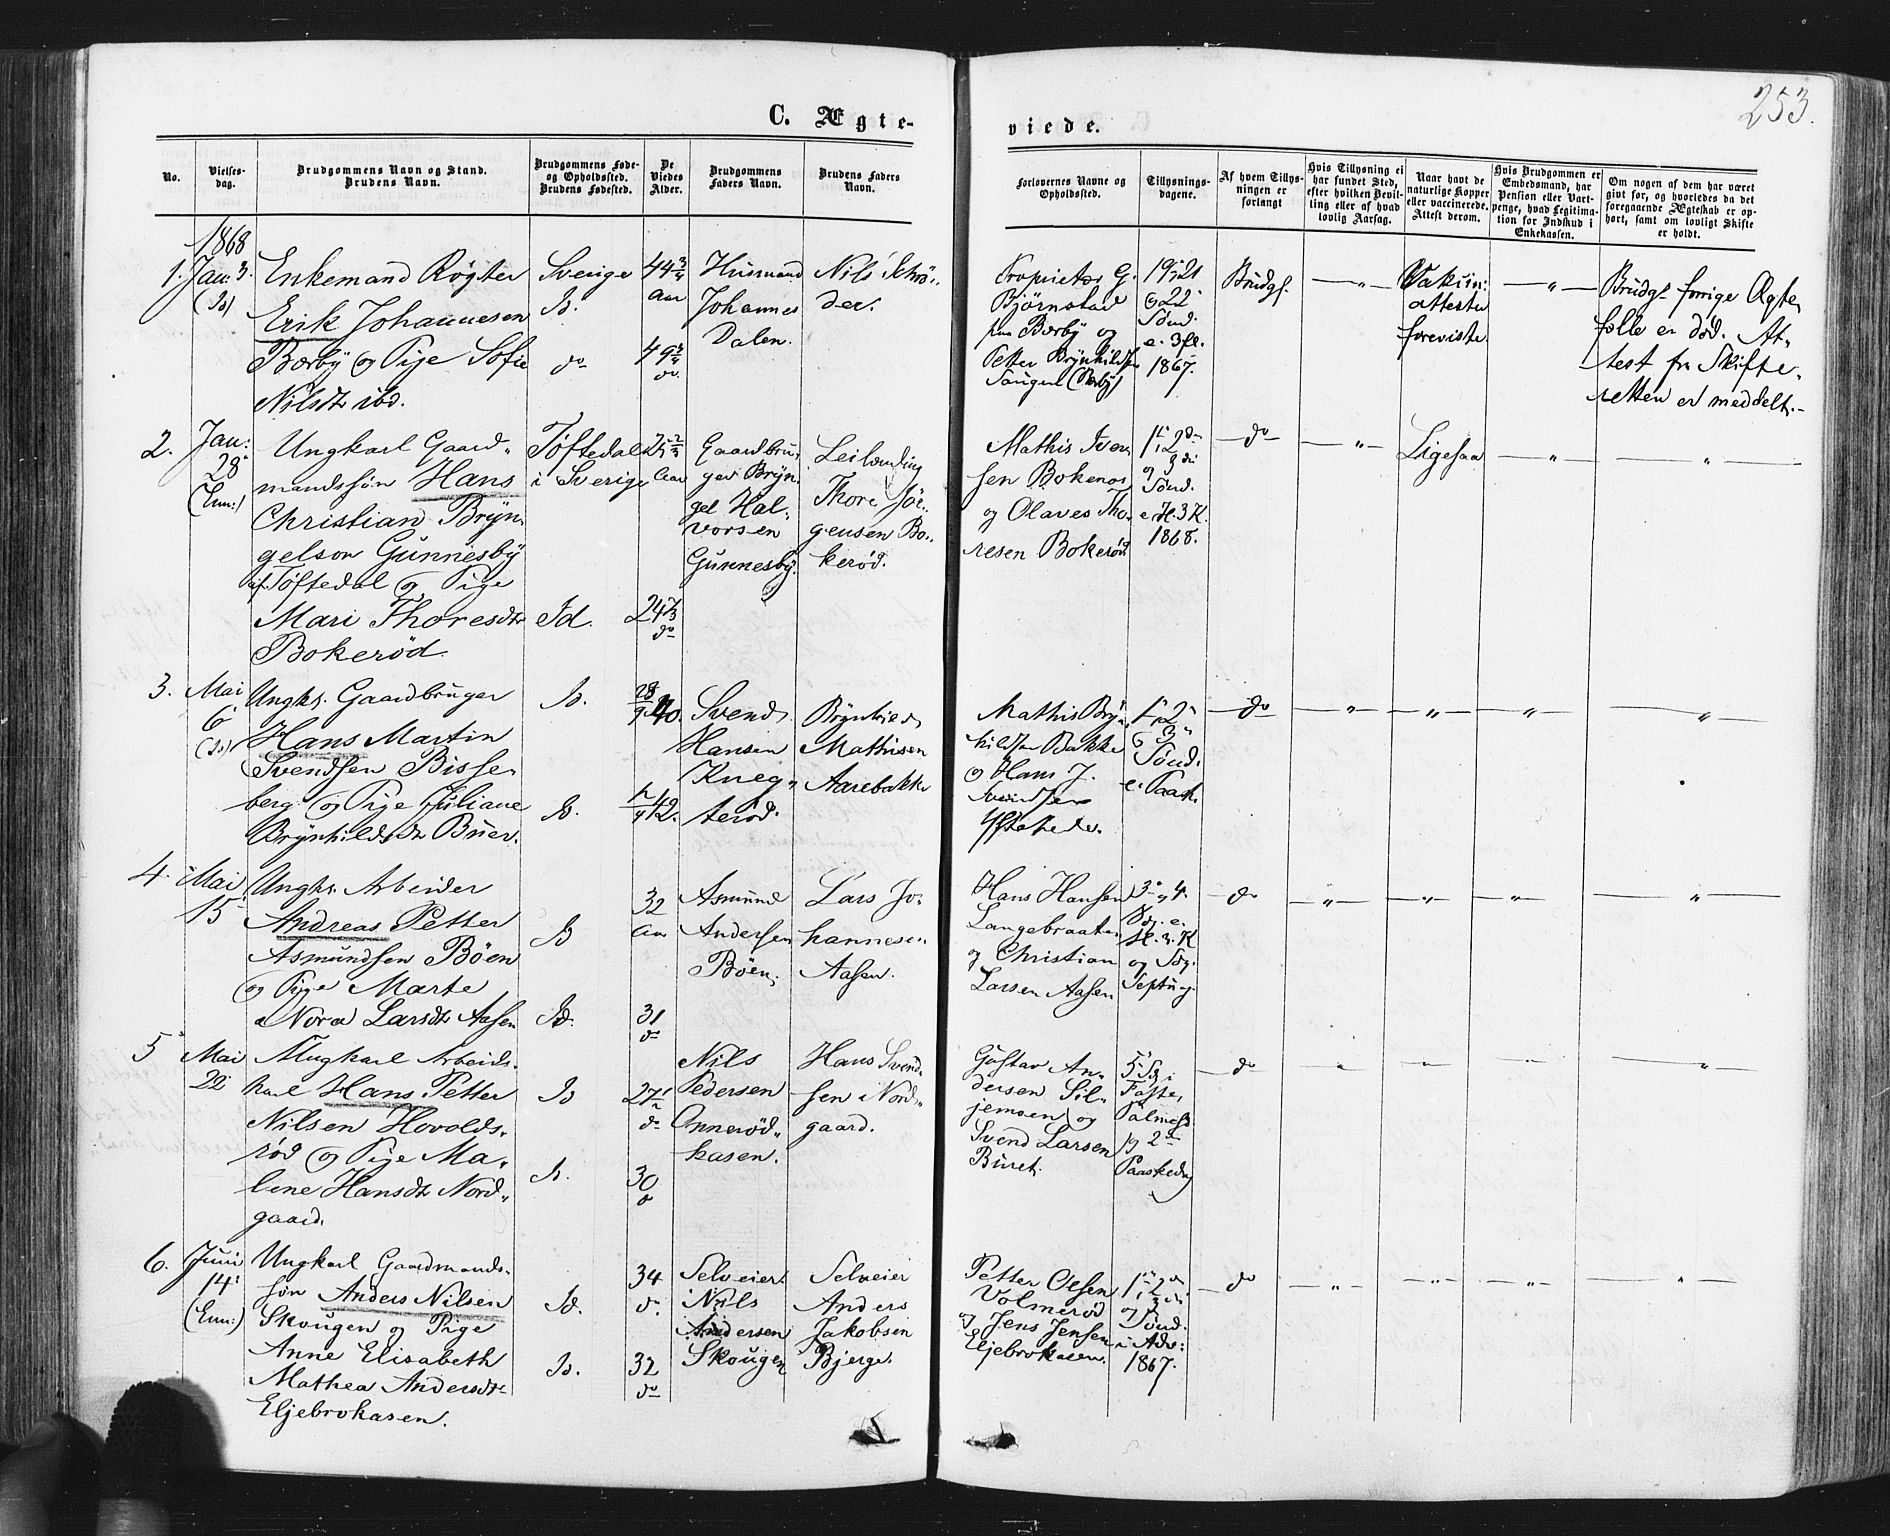 253.
C. Ægte-
viede.
No.
Vielses-
dag.
Brudgommens Navn og Stand.
Brudens Navn.
Brudgommens Føde-
og Opholdssted.
Brudens Fødested.
De
Viedes
Alder.
Brudgommens
Faders Navn.
Brudens Faders
Navn.
Forlovernes Navne og
Opholdssted.
Tillysnings-
dagene.
Af hvem Tillys-
ningen er
forlangt
Hvis Tillysning ei
har fundet Sted,
efter hvilken Bevil-
ling eller af hvad
lovlig Aarsag.
Naar havt de
naturlige Kopper
eller vaccinerede.
Attest derom.
Hvis Brudgommen er
Embedsmand, har
Pension eller Vart-
penge, hvad Legitima-
tion for Indskud i
Enkekassen.
Om nogen af dem har været
gift før, og hvorledes da det
foregaaende Ægteskab er op-
hørt, samt om lovligt Skifte
er holdt.
1868
1. Jan: 3.
(Id)
Enkemand Røgter
Erik Johannesen
Bærby og Pige Sofie
Nilsdtr ibd.
Sverige
Id.
do
44 3/4
Aar
49 3/4
do.
Husmand
Johannes
Dalen.
Nils Schrø-
der.
Proprietær G.
Bjørnstad
paa Bærby og
Petter Brynhildsen
Saugen (Bærby)
19, 21
og 22
Sønd.
e. 3fl.
1867.
Brudgs
— " —
Vakzin:
attester
foreviste
— " —
Brudgs forrige Ægte,
fælle er død. At-
test fra Skifte,
retten er meddelt.-
2. Jan:
28
(Enn:)
Ungkarl Gaard"
mandssøn Hans
Christian Bryn,
gelson Gunnesby
af Tøftedal og Pige
Mari Thoresdtr
Bokerød.
Tøftedal
i Sverige
Id.
25 2/3
Aar
24 2/3
do
Gaardbru,
ger Bryn,
gel Hal-
vorsen
Gunnesby.
Leilænding
Thore Jør-
gensen Bo-
kerød.
Mathis Iver
sen Bokerød
og Olaves Tho-
resen Bokerød
1ste, 2den
og 3die
Sønd.
e. H. 3 K.
1868.
— do —
— " —
Ligesaa
— " —
"
3. Mai
6
(Id)
Ungk. Gaardbruger
Hans Martin
Svendsen Bisse-
berg og Pige Juliane
Brynhildsdtr Buer.
Id.
Id.
28/9 40.
42.
Svend
Hansen
Kneg"
terød.
Brynhild
Mathisen
Aarebakke
Mathis Bryn
hildsen Bakke
og Hans J.
Svendsen
1, 2
og 3
Sønd.
e. Paask.
— do —
"
"
"
"
4. Mai
15
Ungk. Arbeider
Andreas Petter
Asmundsen Böen
og Pige Marte
Nora Larsdtr Aasen
Id
Id.
32
Aar
31
do
Asmund
Andersen
Böen.
Lars Jo-
hannesen
Aasen.
Hans Hansen
Langebraaten
og Christian
Larsen Aasen
3, 4.
Søg. e.
H. 3. K
og Søg.
Septuag.
— do —
"
"
"
"
5 Mai
22
Ungkarl Arbeids-
karl Hans Petter
Nilsen Hovolds-
rød og Pige Ma-
lene Hansdtr Nord"
gaard.
Id
Id.
27 1/2
do
30
do
Nils
Pedersen
Onnerød"
kasen.
Hans Svend-
sen Nord"
gaard.
Gustav An-
dersen Sil-
jemoen og
Svend Larsen
Buret.
5 Sg i
Faste,
Palmesd
og 2den
Paaskedag
— do —
"
"
"
"
6. Juni
14
(Enn:)
Ungkarl Gaardmands-
søn Anders Nilsen
Skougen og Pige
Anne Elisabeth
Mathea Andersdtr
Eljebrokasen.
Id.
Id.
34
do.
32
do
Selveier
Nils
Andersen
Skougen
Selveier
Anders
Jakobsen
Bjerge.
Petter Olsen
Volmerød
og Jens Jensen
Eljebrokasen.
1, 2den
og 3die
Sønd.
i Adv:
1867.
— do —
"
"
"
"